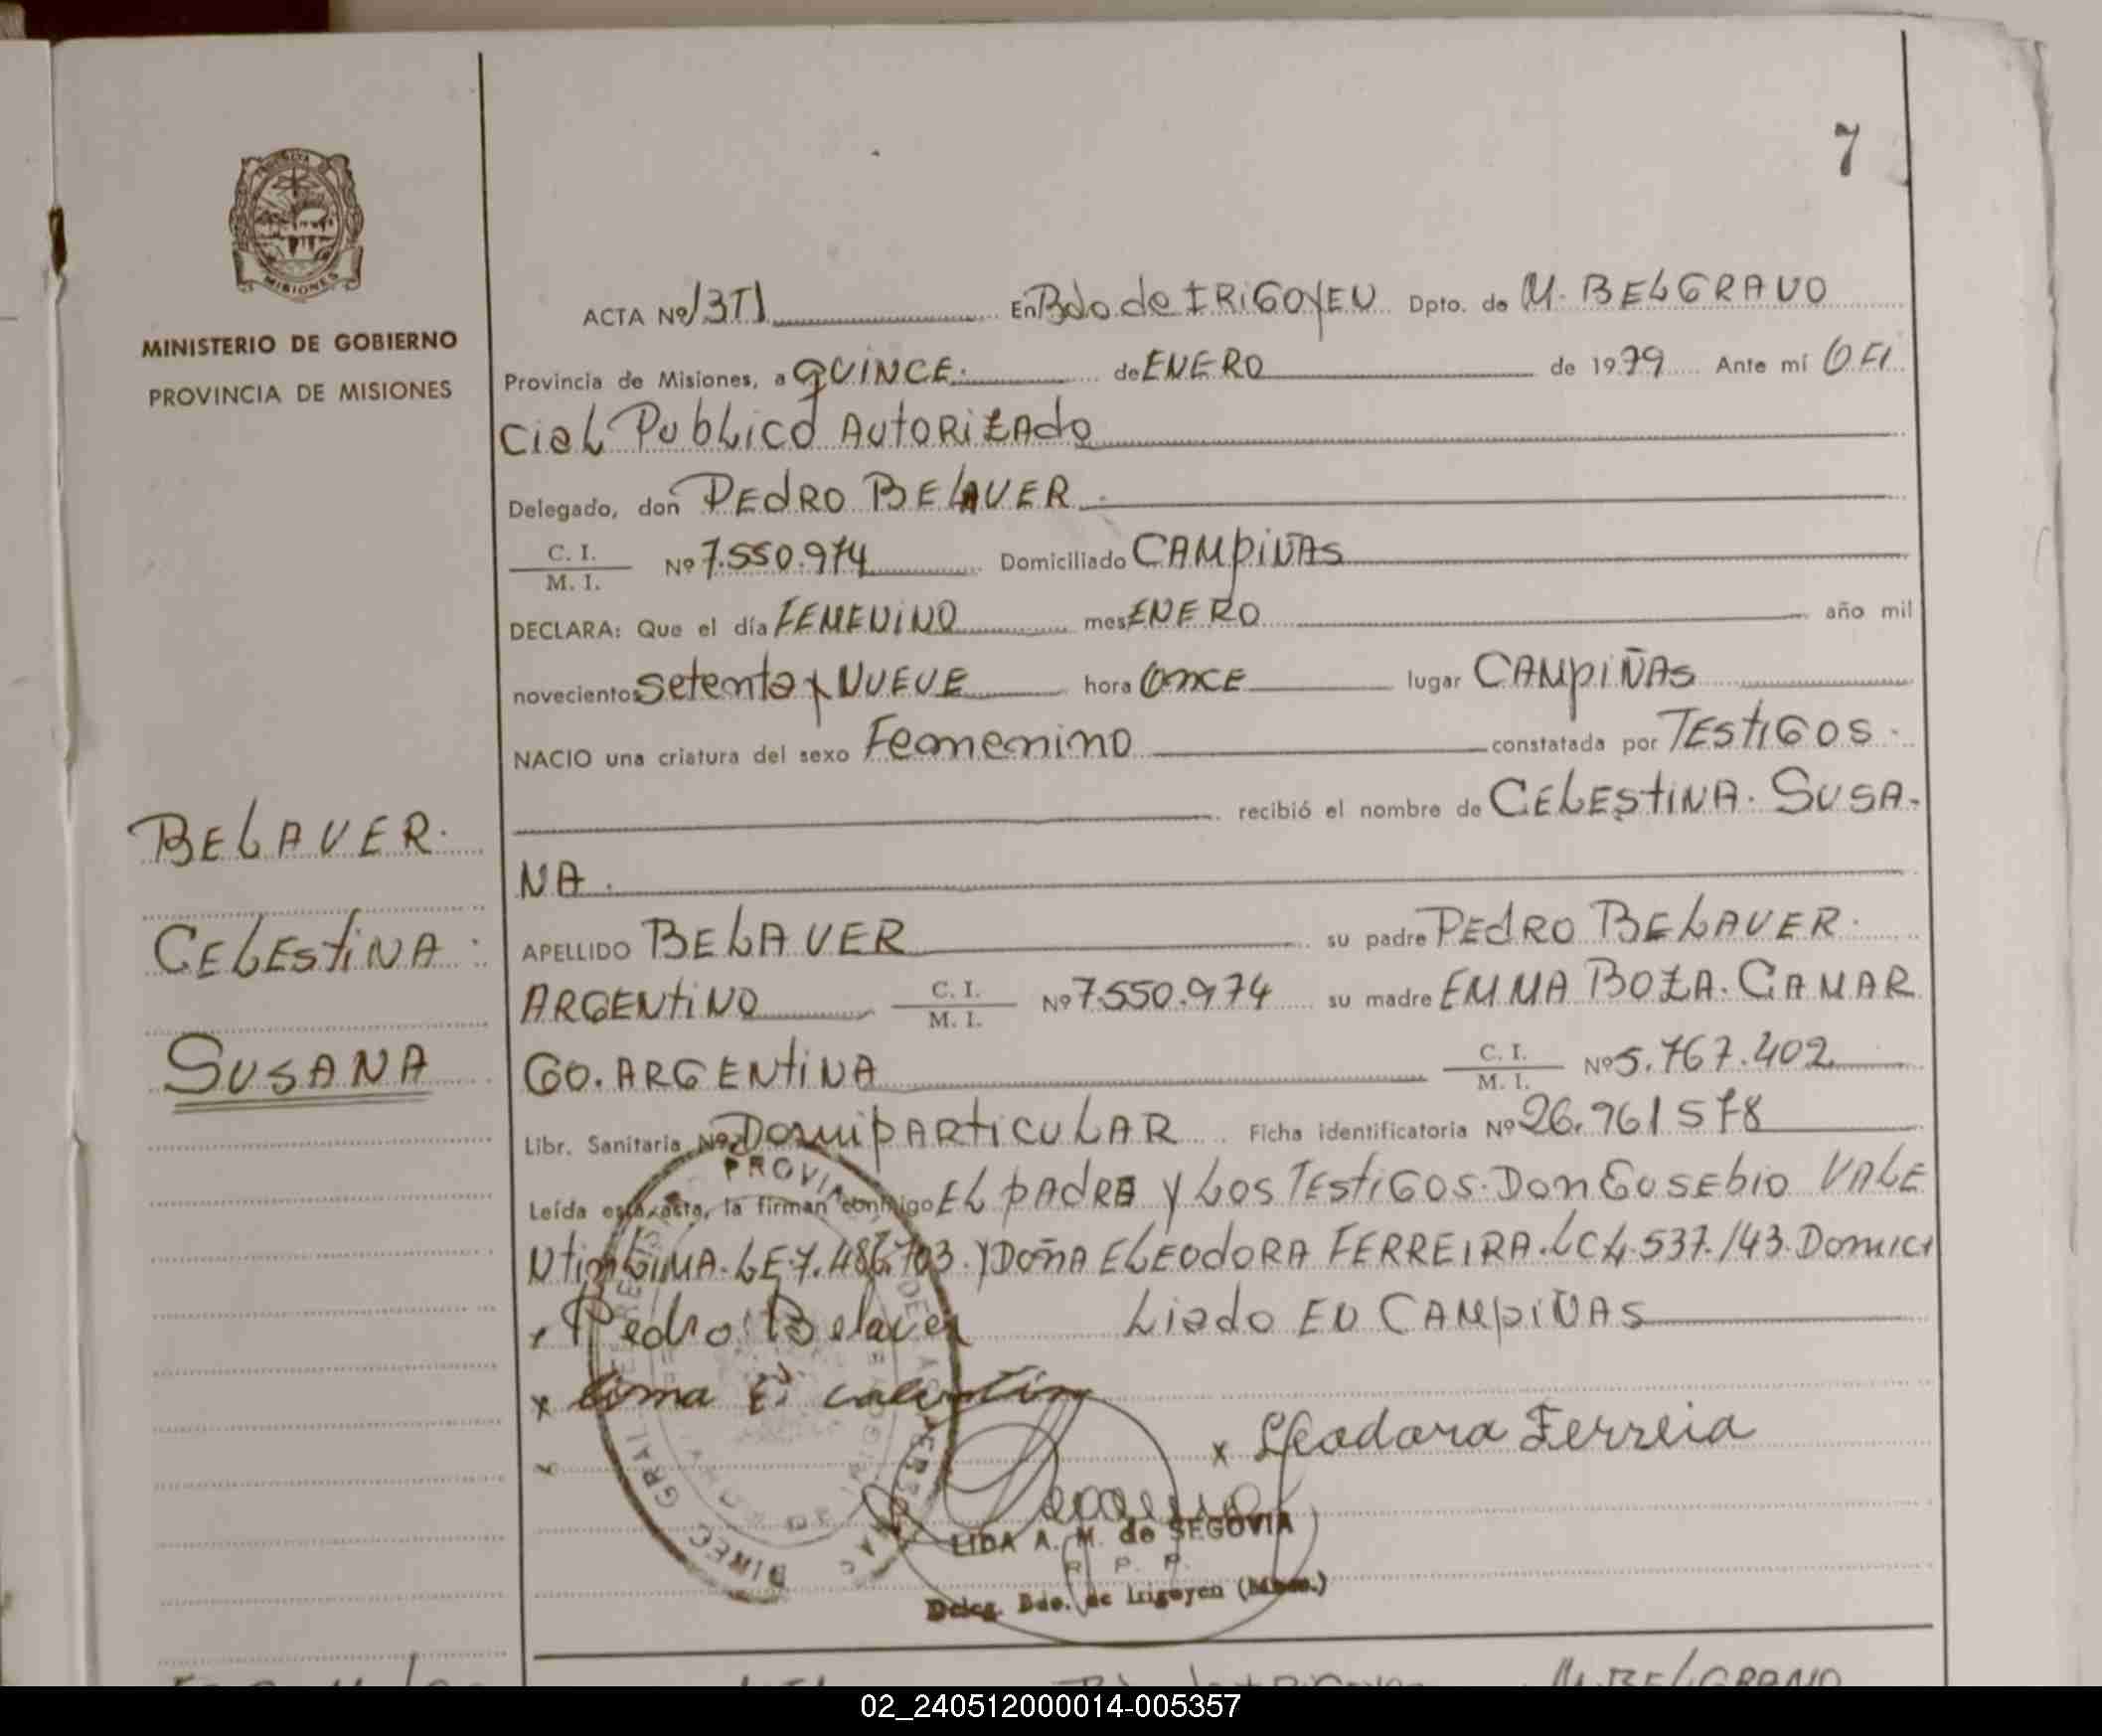 7
MISIONES
MINISTERIO DE GOBIERNO
PROVINCIA DE MISIONES
BELAVER.
CELEStiNA
SUSANA
ACTA Nº 13TI En Bdo de IRiGOYEN Dpto. de M. BELGRANO
Provincia de Misiones, a QUINCE. de ENERO de 1979 Ante mí OFI
CiaL PubLico AUtoRiZAdo
Delegado, don PEdRO BELAVER.
C. I. / M. I. Nº 7.550.974 Domiciliado CAMpiÑAS
DECLARA: Que el día FEMENiNO mes ENERO año mil
novecientos setenta y NUEVE hora ONCE lugar CAMpiÑAS
NACIO una criatura del sexo Femenino constatada por TEStiGOS.
recibió el nombre de CELEStiNA. SUSA-
NA.
APELLIDO BELAVER su padre PEdRO BELAVER.
ARGENtiNO C. I. / M. I. Nº 7.550.974 su madre EMMA BOZA. CAMAR
GO. ARGENtiNA C. I. / M. I. Nº 5.767.402
Libr. Sanitaria Nº DomipARtiCULAR Ficha identificatoria Nº 26.961578
Leída esta acta, la firman conmigo EL pAdRE y LOS TEStiGOS. Don EUSEbio VALE
NtiN LiMA. LE 7.486.703. y DOÑA ELEOdORA FERREIRA. LC 4.537.143. Domici
Liado EN CAMpiÑAS
x Pedro Belaver
x Lima E. valentin
x Leodora Ferreia
PROVINCIA DE
DIREC. GRAL
LIDA A. M. de SEGOVIA
R. P. P.
Deleg. Bdo. de Irigoyen (Mnes.)
M. BELGRANO
02_240512000014-005357